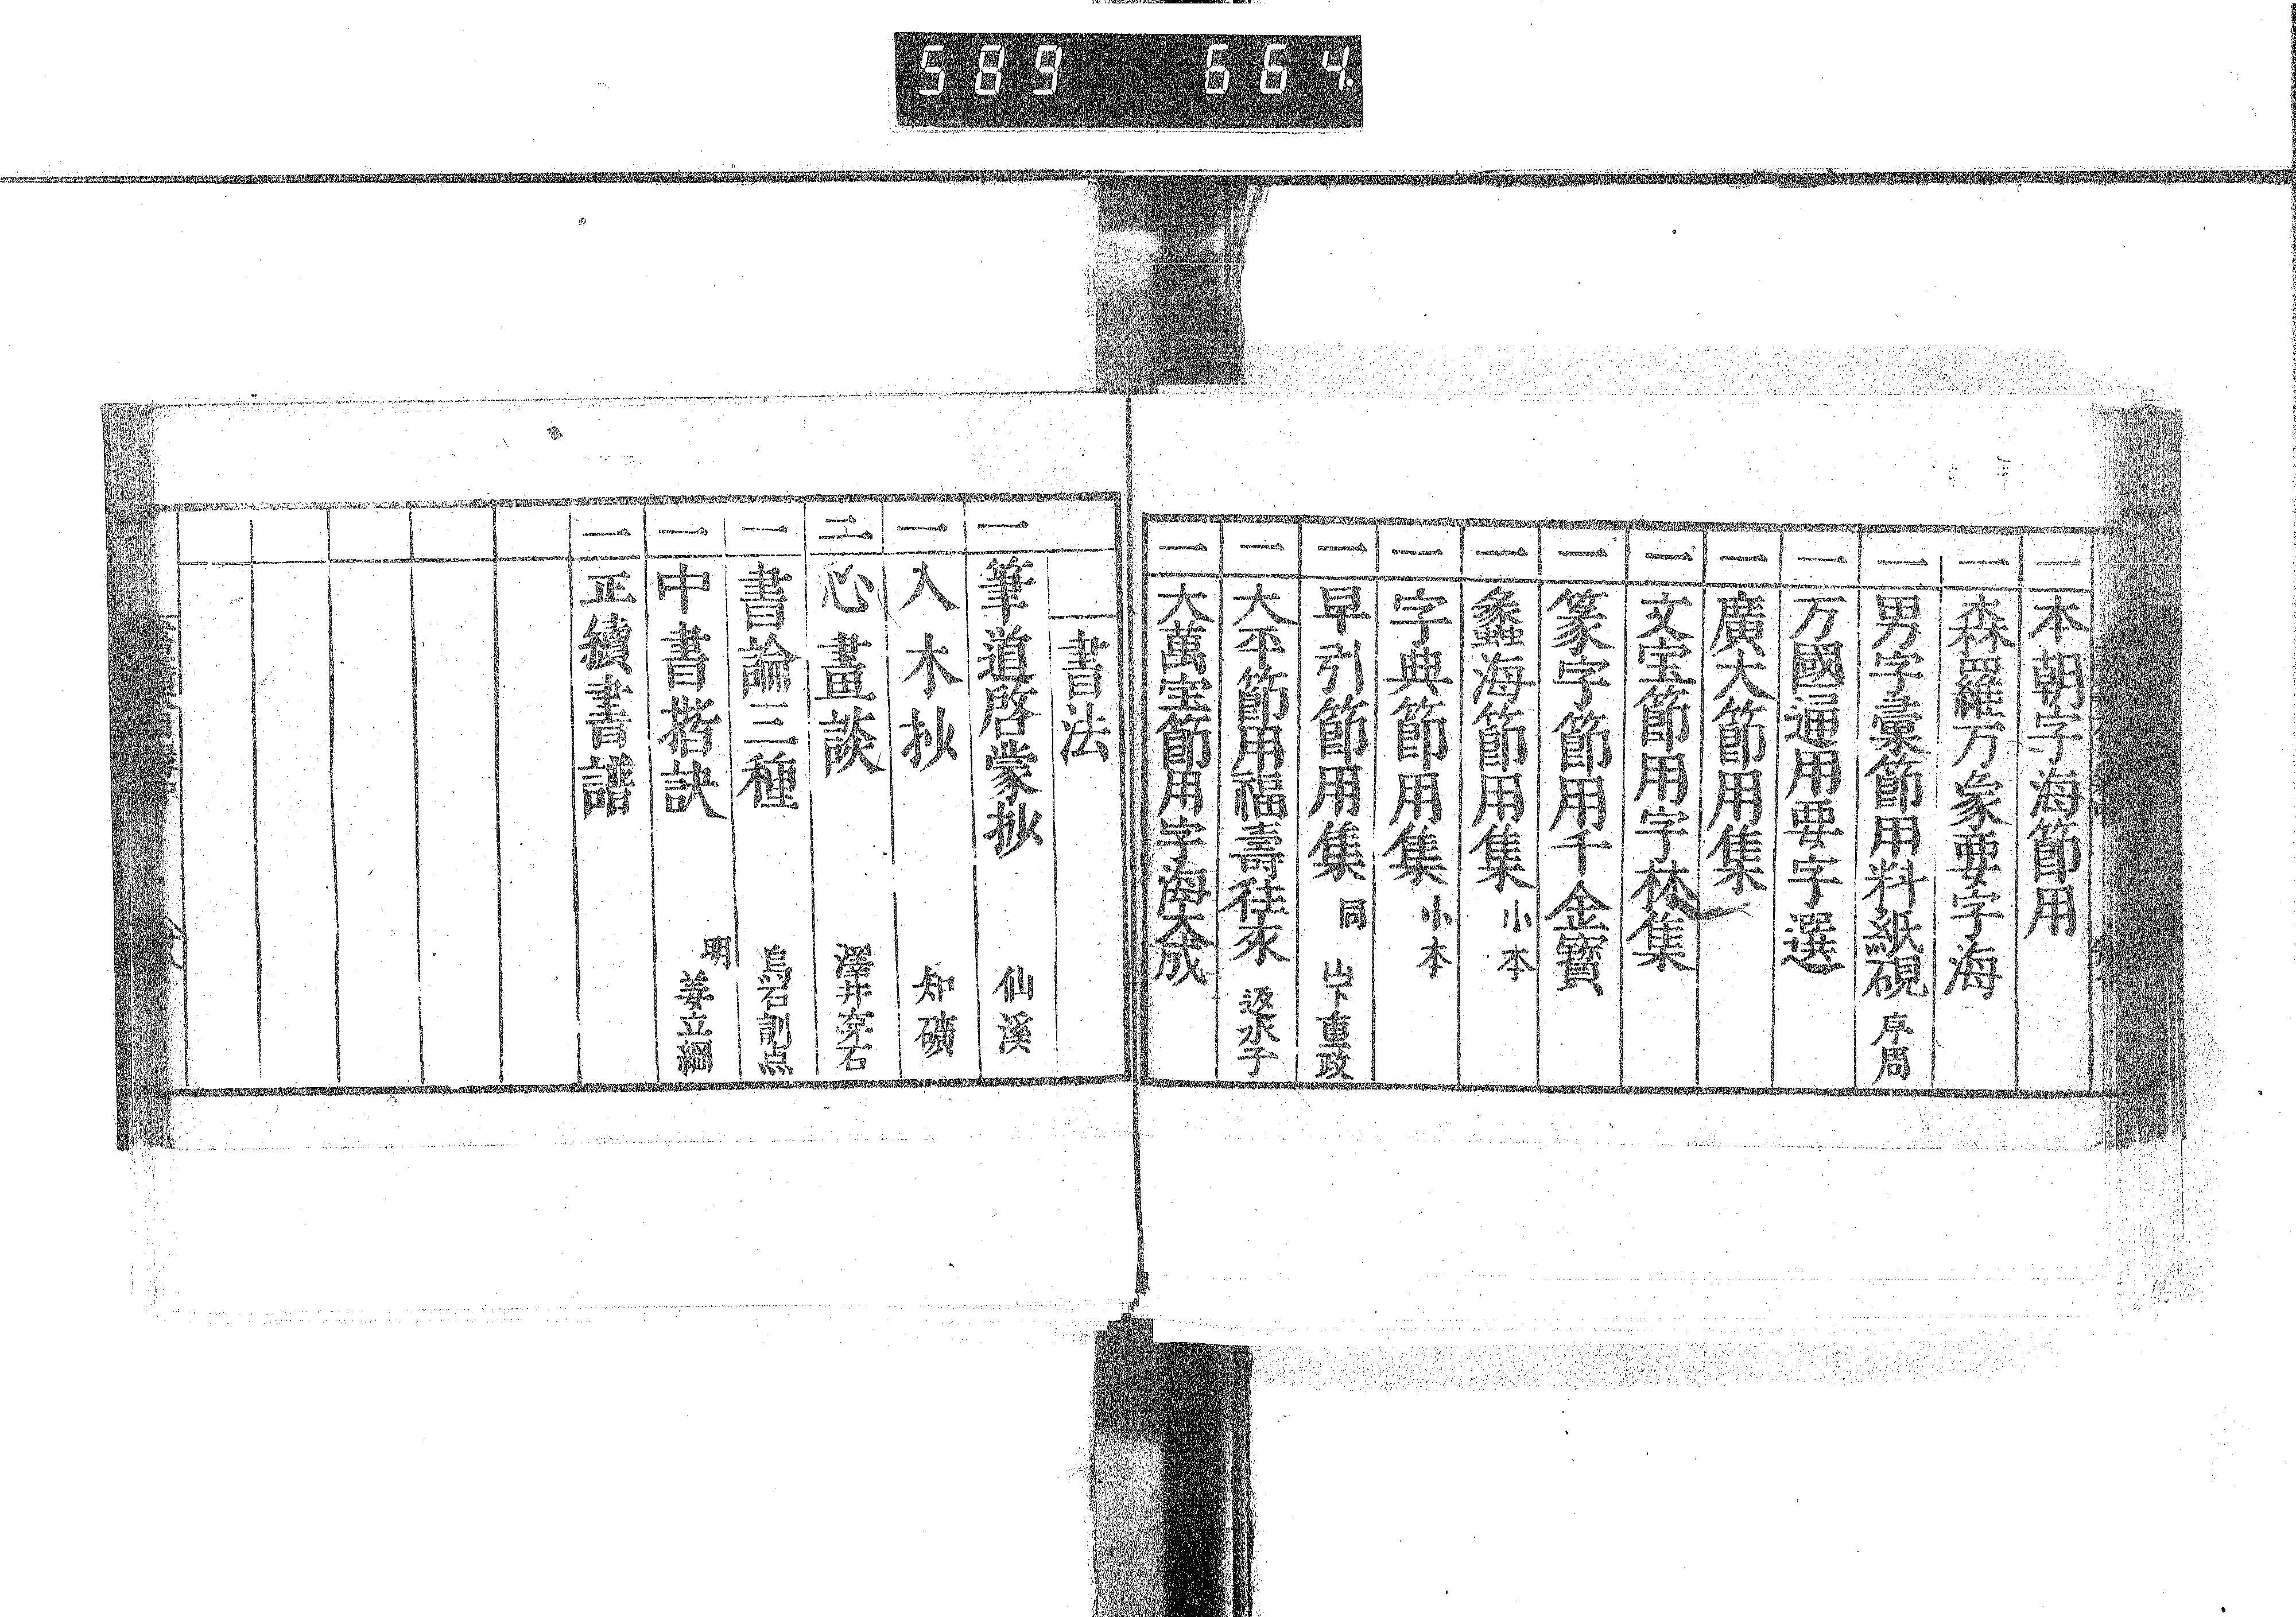 589 664.
一 本朝字海節用
一 森羅万象要字海
一 男字彙節用料紙硯 序周
一 万國通用要字選
一 廣大節用集
一 文宝節用字林集
一 篆字節用千金寶
一 蠡海節用集 小本
一 字典節用集 小本
一 早引節用集 同 山下重政
一 大平節用福壽往來 返水子
一 大萬宝節用字海大成
書法
一 筆道啓蒙抄 仙溪
一 入木抄 知礒
二 心畫談 澤井穿石
一 書論三種 烏石訓点
一 中書楷訣 明 姜立綱
一 正續書譜